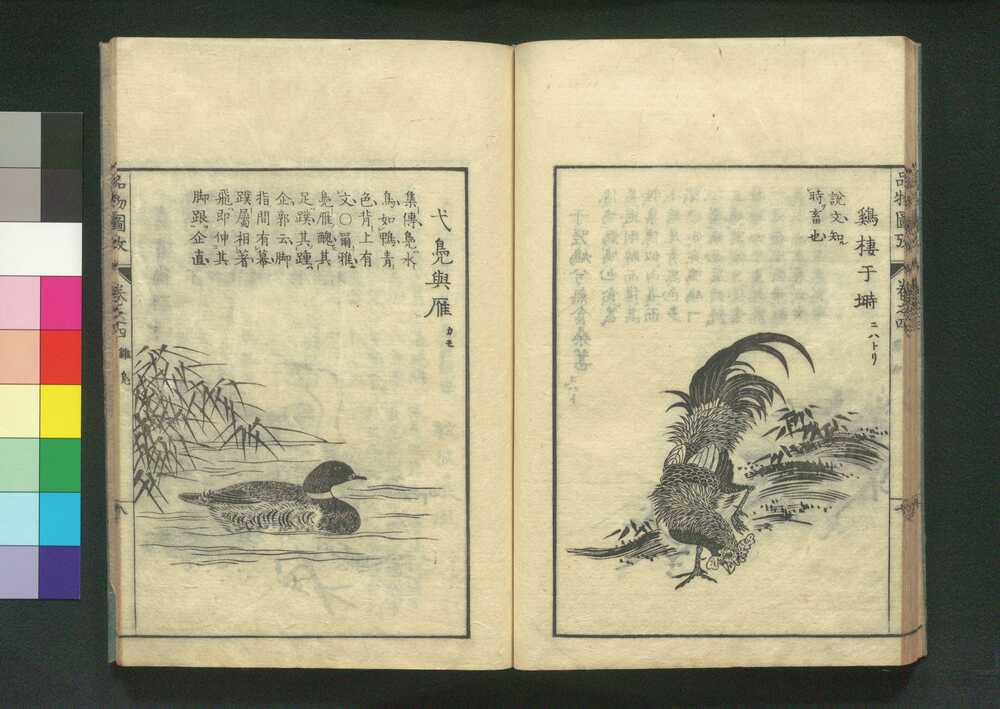 鷄棲于塒 ニハトリ
說文知
時畜也
品物圖攷
卷之四
弋鳧與雁 カモ
集傳鳧水
鳥如鴨青
色背上有
文〇爾雅
鳧雁醜其
足蹼其踵
企郭云脚
指間有幕
蹼屬相著
飛即伸其
脚跟企直
品物圖攷
卷之四